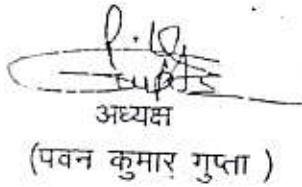 अध्यक्ष
(पवन कुमार गुप्ता )